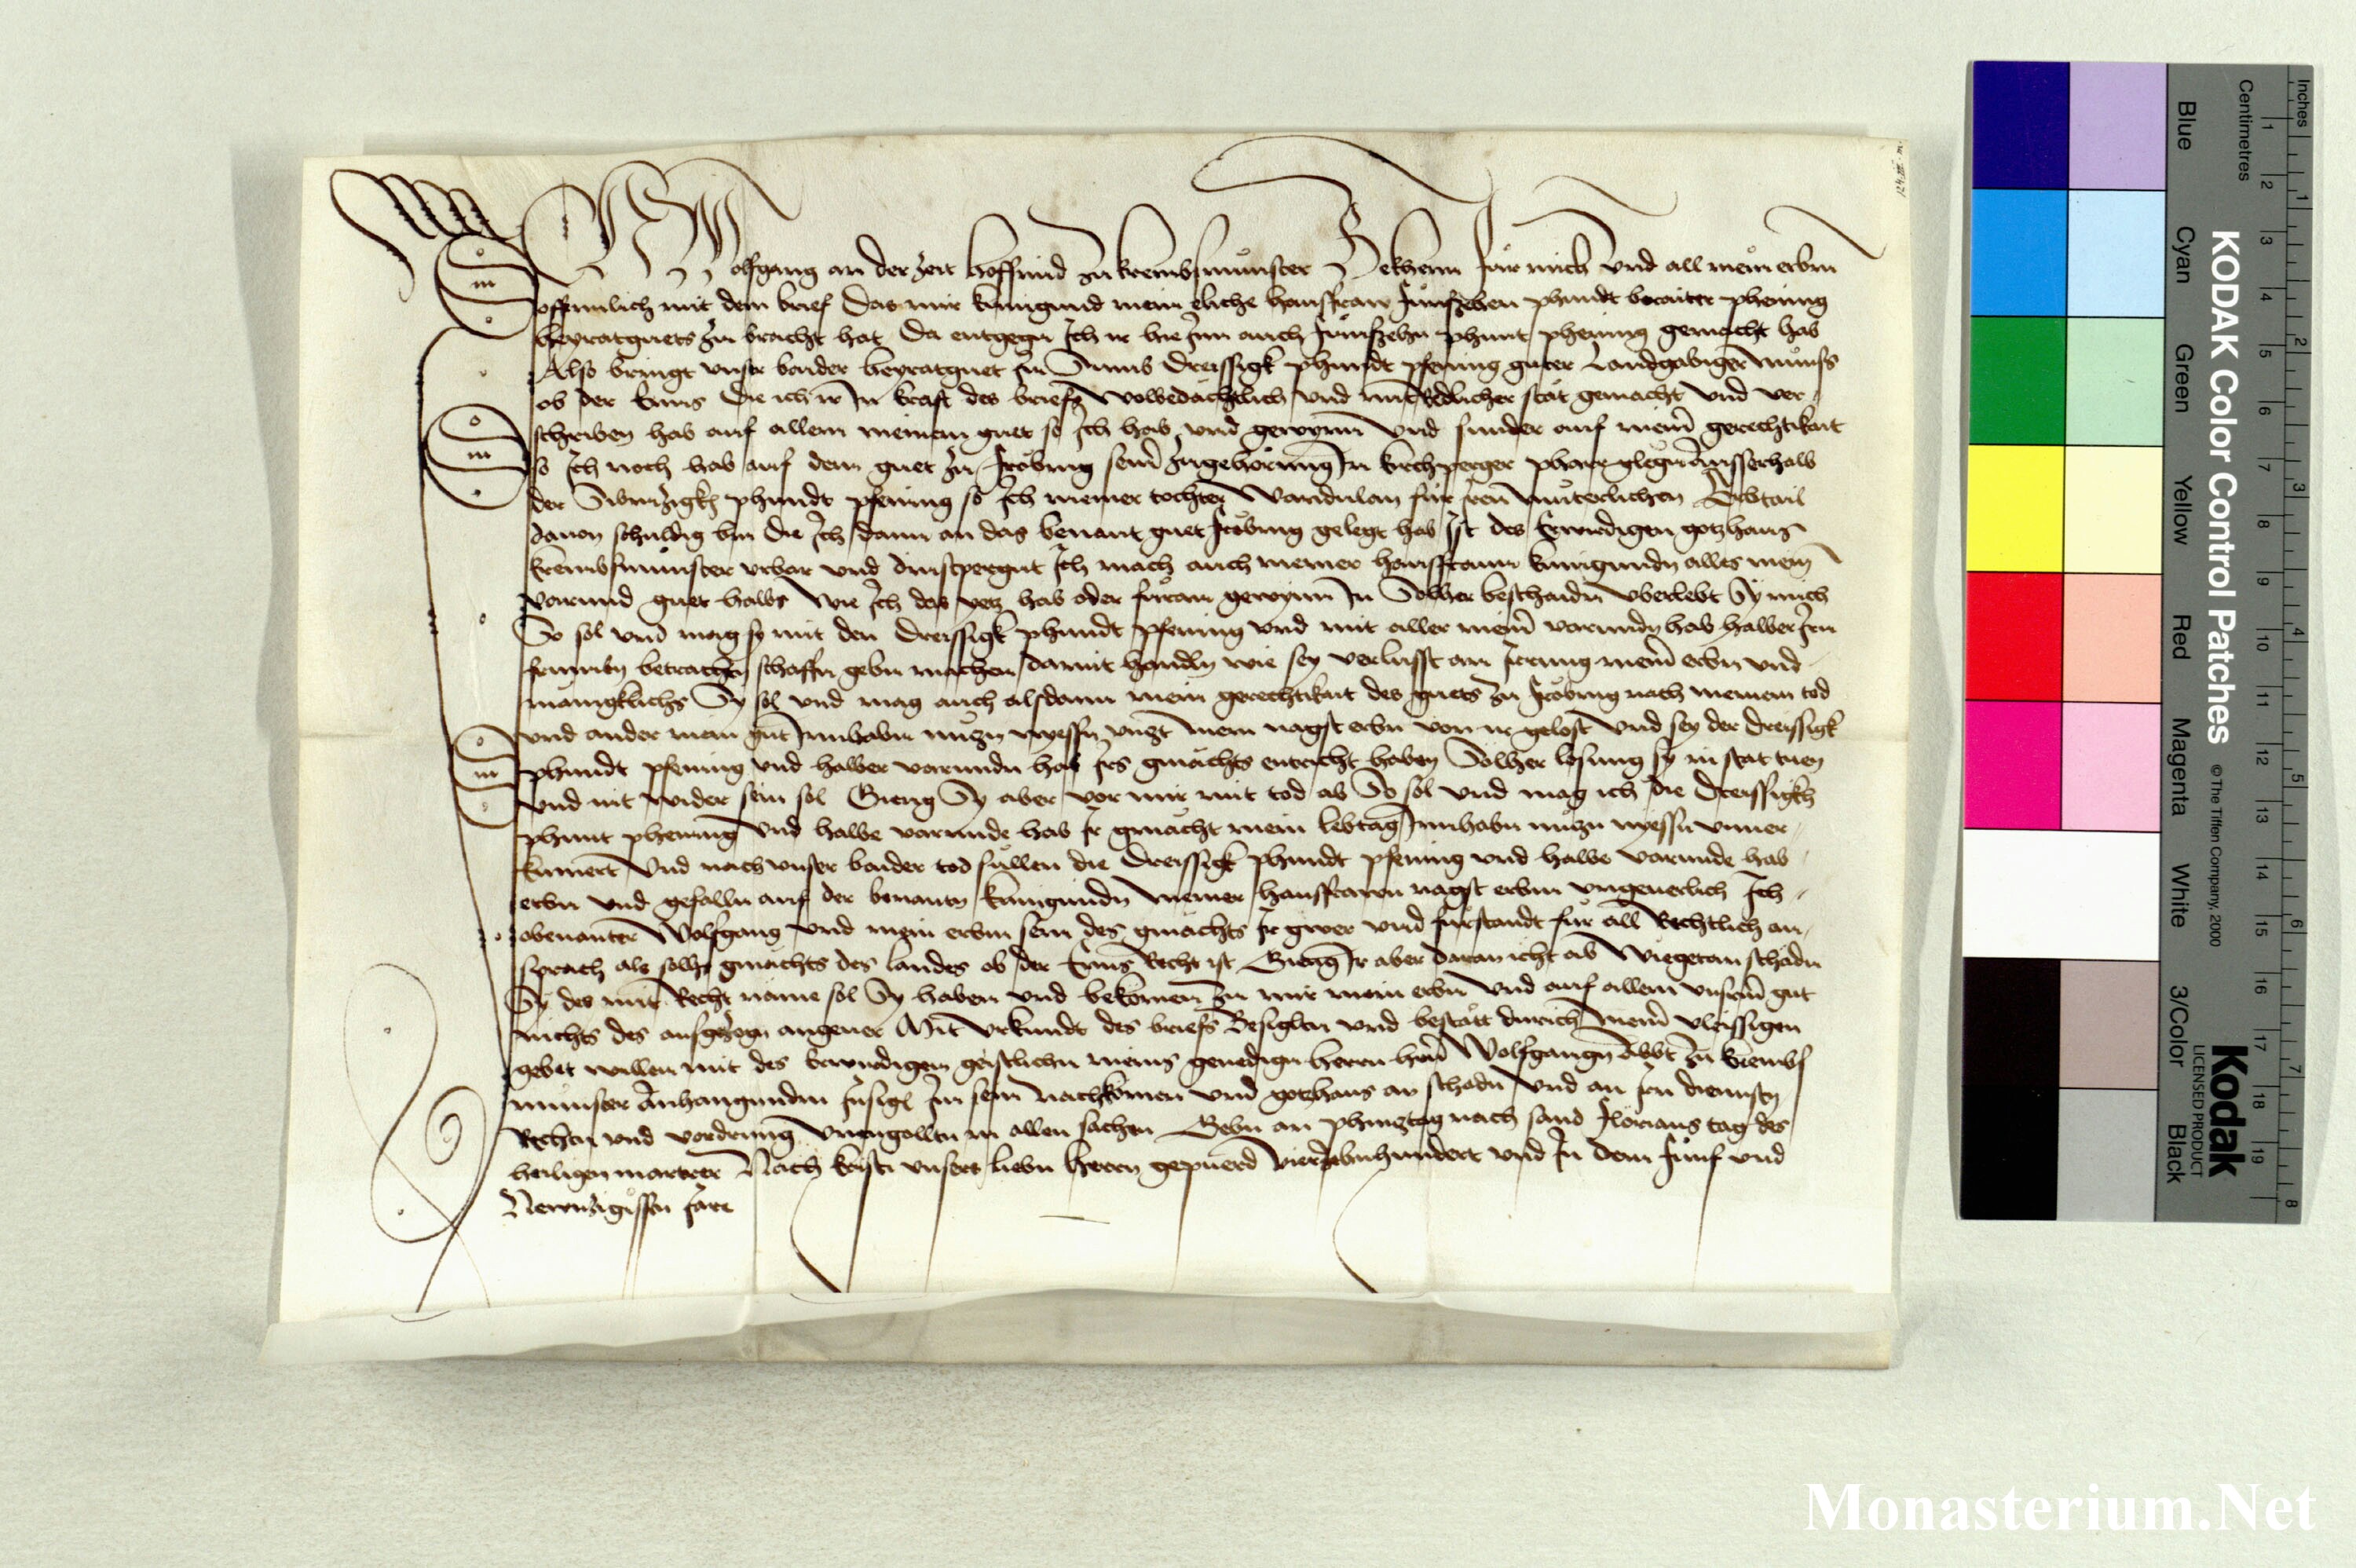 Ich Wolfgang an der zeit hoffrind zu krembsmünster Bekhenn für mich vnd all mein erbm
offennlich mit dem brief Das mir kunigund mein eliche hausfraw fünfzehen phundt beraitter phening
heyratguets zu bracht hat Da entgegn Ich ir hie Inn auch fünfzehn phunt phening gemacht hab
Also bringt vnser baider heyratguet In Sumb Dreissigk phundt pfening guter Landgabiger münss
ob der Enns Die ich ir In kraft des briefs wolbedachtlich vnd mit Redlicher stät gemacht vnd ver
schriben hab auf allem meinem guet so Ich hab vnd gewynn vnd sunder auf meinr gerechtikait
so Ich noch hab auf dem guet zu seinr zugehörung In kirchperger pharr glegn Ausserhalb
der Sibnzigk phundt pfening so Ich meiner tochter für Iren mueterlichen Erbtail
dauon schuldig bin die Ich dann an das benant guet gelegt hab Ist des Erwirdigen gotzhaus
krembsmünster vrbar vnd dinstpergut Ich mach auch meiner hausfraun kunigundn alles mein
varund guet halbs wie Ich das yetz hab oder füran gewynn In Solher beschaidn vberlebt Sy mich
So sol vnd mag sy mit den Dreissigk phundt pfening vnd mit aller meinr varundn hab halber Irn
frumbn betrachtn schaffn gebn machen damit handln wie sey verlusst an Irrung meinr erbn vnd
mäniglichs Sy sol vnd mag auch alsdann mein gerechtikait des guets zu nach meinem tod
vnd ander mein gut Innhabn nützn nyessn vnzt mein nagst erbn von ir gelost vnd sey der dreissigk
phundt pfening vnd halber varundn hab Irs gmächts entricht haben Solher losung sy in stat tuen
vnd nit wider sein sol Gieng Sy aber vor mir mit tod ab So sol vnd mag ich die Dreissigkh
phunt phening vnd halbe varunde hab Ir gmächt mein lebtag Innhabn nützn nyessn vnuer
kumert vnd nach vnser baider tod süllen die Dreissigk phundt pfening vnd halbe varunde hab
erbn vnd gefalln auf der benantn kunigundn meiner hausfrawn nagst erbm vngeuerlich Ich
obenanter Wolfgang vnd mein erbm sein des gmächts Ir gwer vnd fürstandt für all Rechtlich an
sprach als solhs gmächts des landes ob der Enns Recht ist Gieng Ir aber daran icht ab wiegetan schadn
Sy des mit Recht näme sol Sy haben vnd bekomen zu mir mein erbn vnd auf allem vnserm gut
nichts des aufgezogn angeuer Mit vrkundt des briefs Besigltn vnd bestätt durich meinr vleissigen
gebet willen mit des Erwirdigen geistlichn meins genedign herrn hern Wolfgangn Abbt zu krembs
münster Anhangundm Insigl Im sein nachkomen vnd gotzhaus an schadn vnd an Irn diennstn
Rechtn vnd vordrung vnengolltn in allen sachen Gebn an phinztag nach sand florians tag des
heiligen martrer Nach kristi vnsers liebn herrn gepuerd vierzehnhundert vnd In dem fünf vnd
Newnzigissten Jare
KODAK Color Control Patches
© The Tiffen Company, 2000
Kodak
LICENSED PRODUCT
Blue Cyan Green Yellow Red Magenta White 3/Color Black
Inches 1 2 3 4 5 6 7 8
Centimetres 1 2 3 4 5 6 7 8 9 10 11 12 13 14 15 16 17 18 19
Monasterium.Net